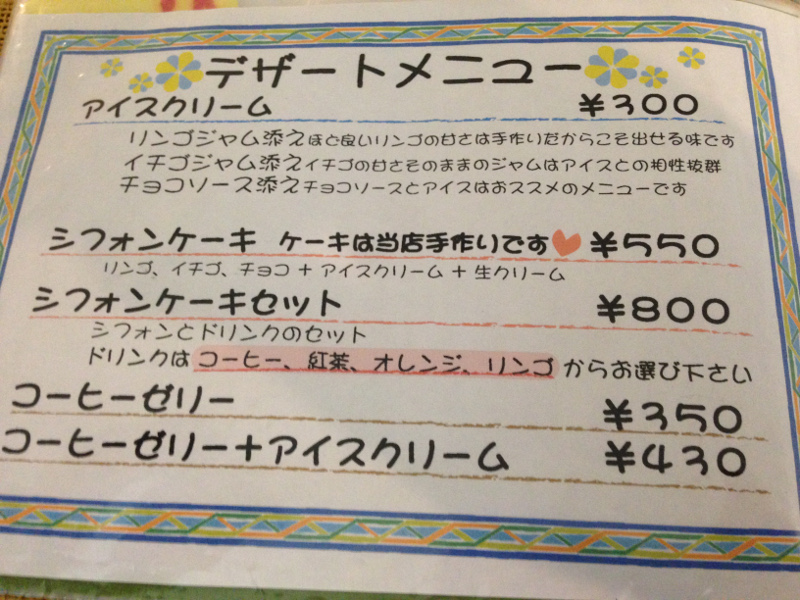 デザートメニュー
アイスクリーム ¥300
リンゴジャム添え ほど良いリンゴの甘さは手作りだからこそ出せる味です
イチゴジャム添え イチゴの甘さそのままのジャムはアイスとの相性抜群
チョコソース添え チョコソースとアイスはおススメのメニューです
シフォンケーキ ケーキは当店手作りです ¥550
リンゴ、イチゴ、チョコ + アイスクリーム + 生クリーム
シフォンケーキセット ¥800
シフォンとドリンクのセット
ドリンクは コーヒー、紅茶、オレンジ、リンゴ からお選び下さい
コーヒーゼリー ¥350
コーヒーゼリー+アイスクリーム ¥430